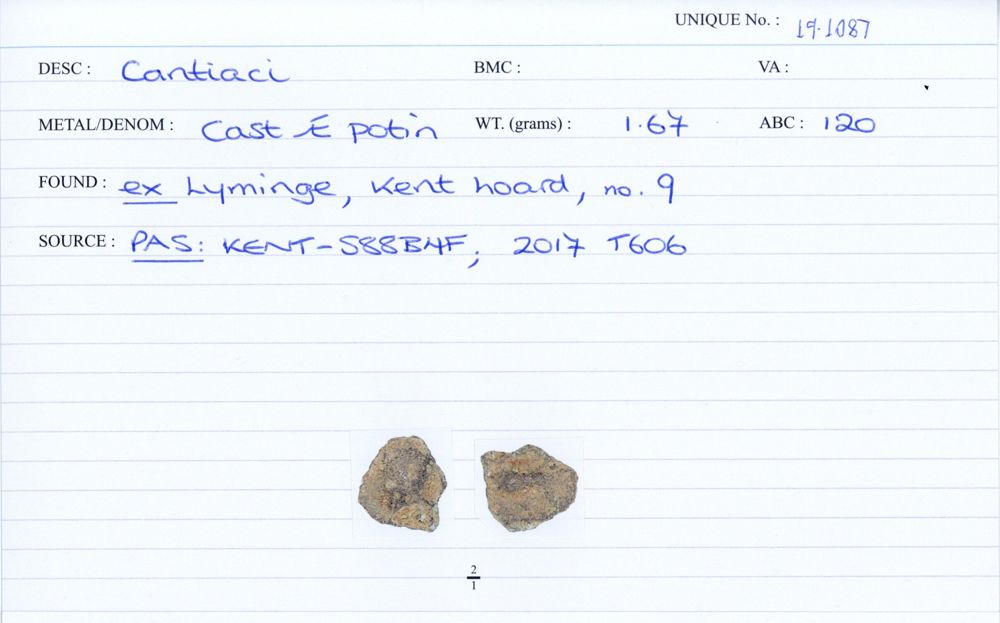 UNIQUE No. : 19.1087
DESC : Cantiaci BMC : VA :
METAL/DENOM : Cast Æ potin WT. (grams) : 1.67 ABC : 120
FOUND : ex Lyminge, Kent hoard, no. 9
SOURCE : PAS: KENT-588B4F; 2017 T606
2
1